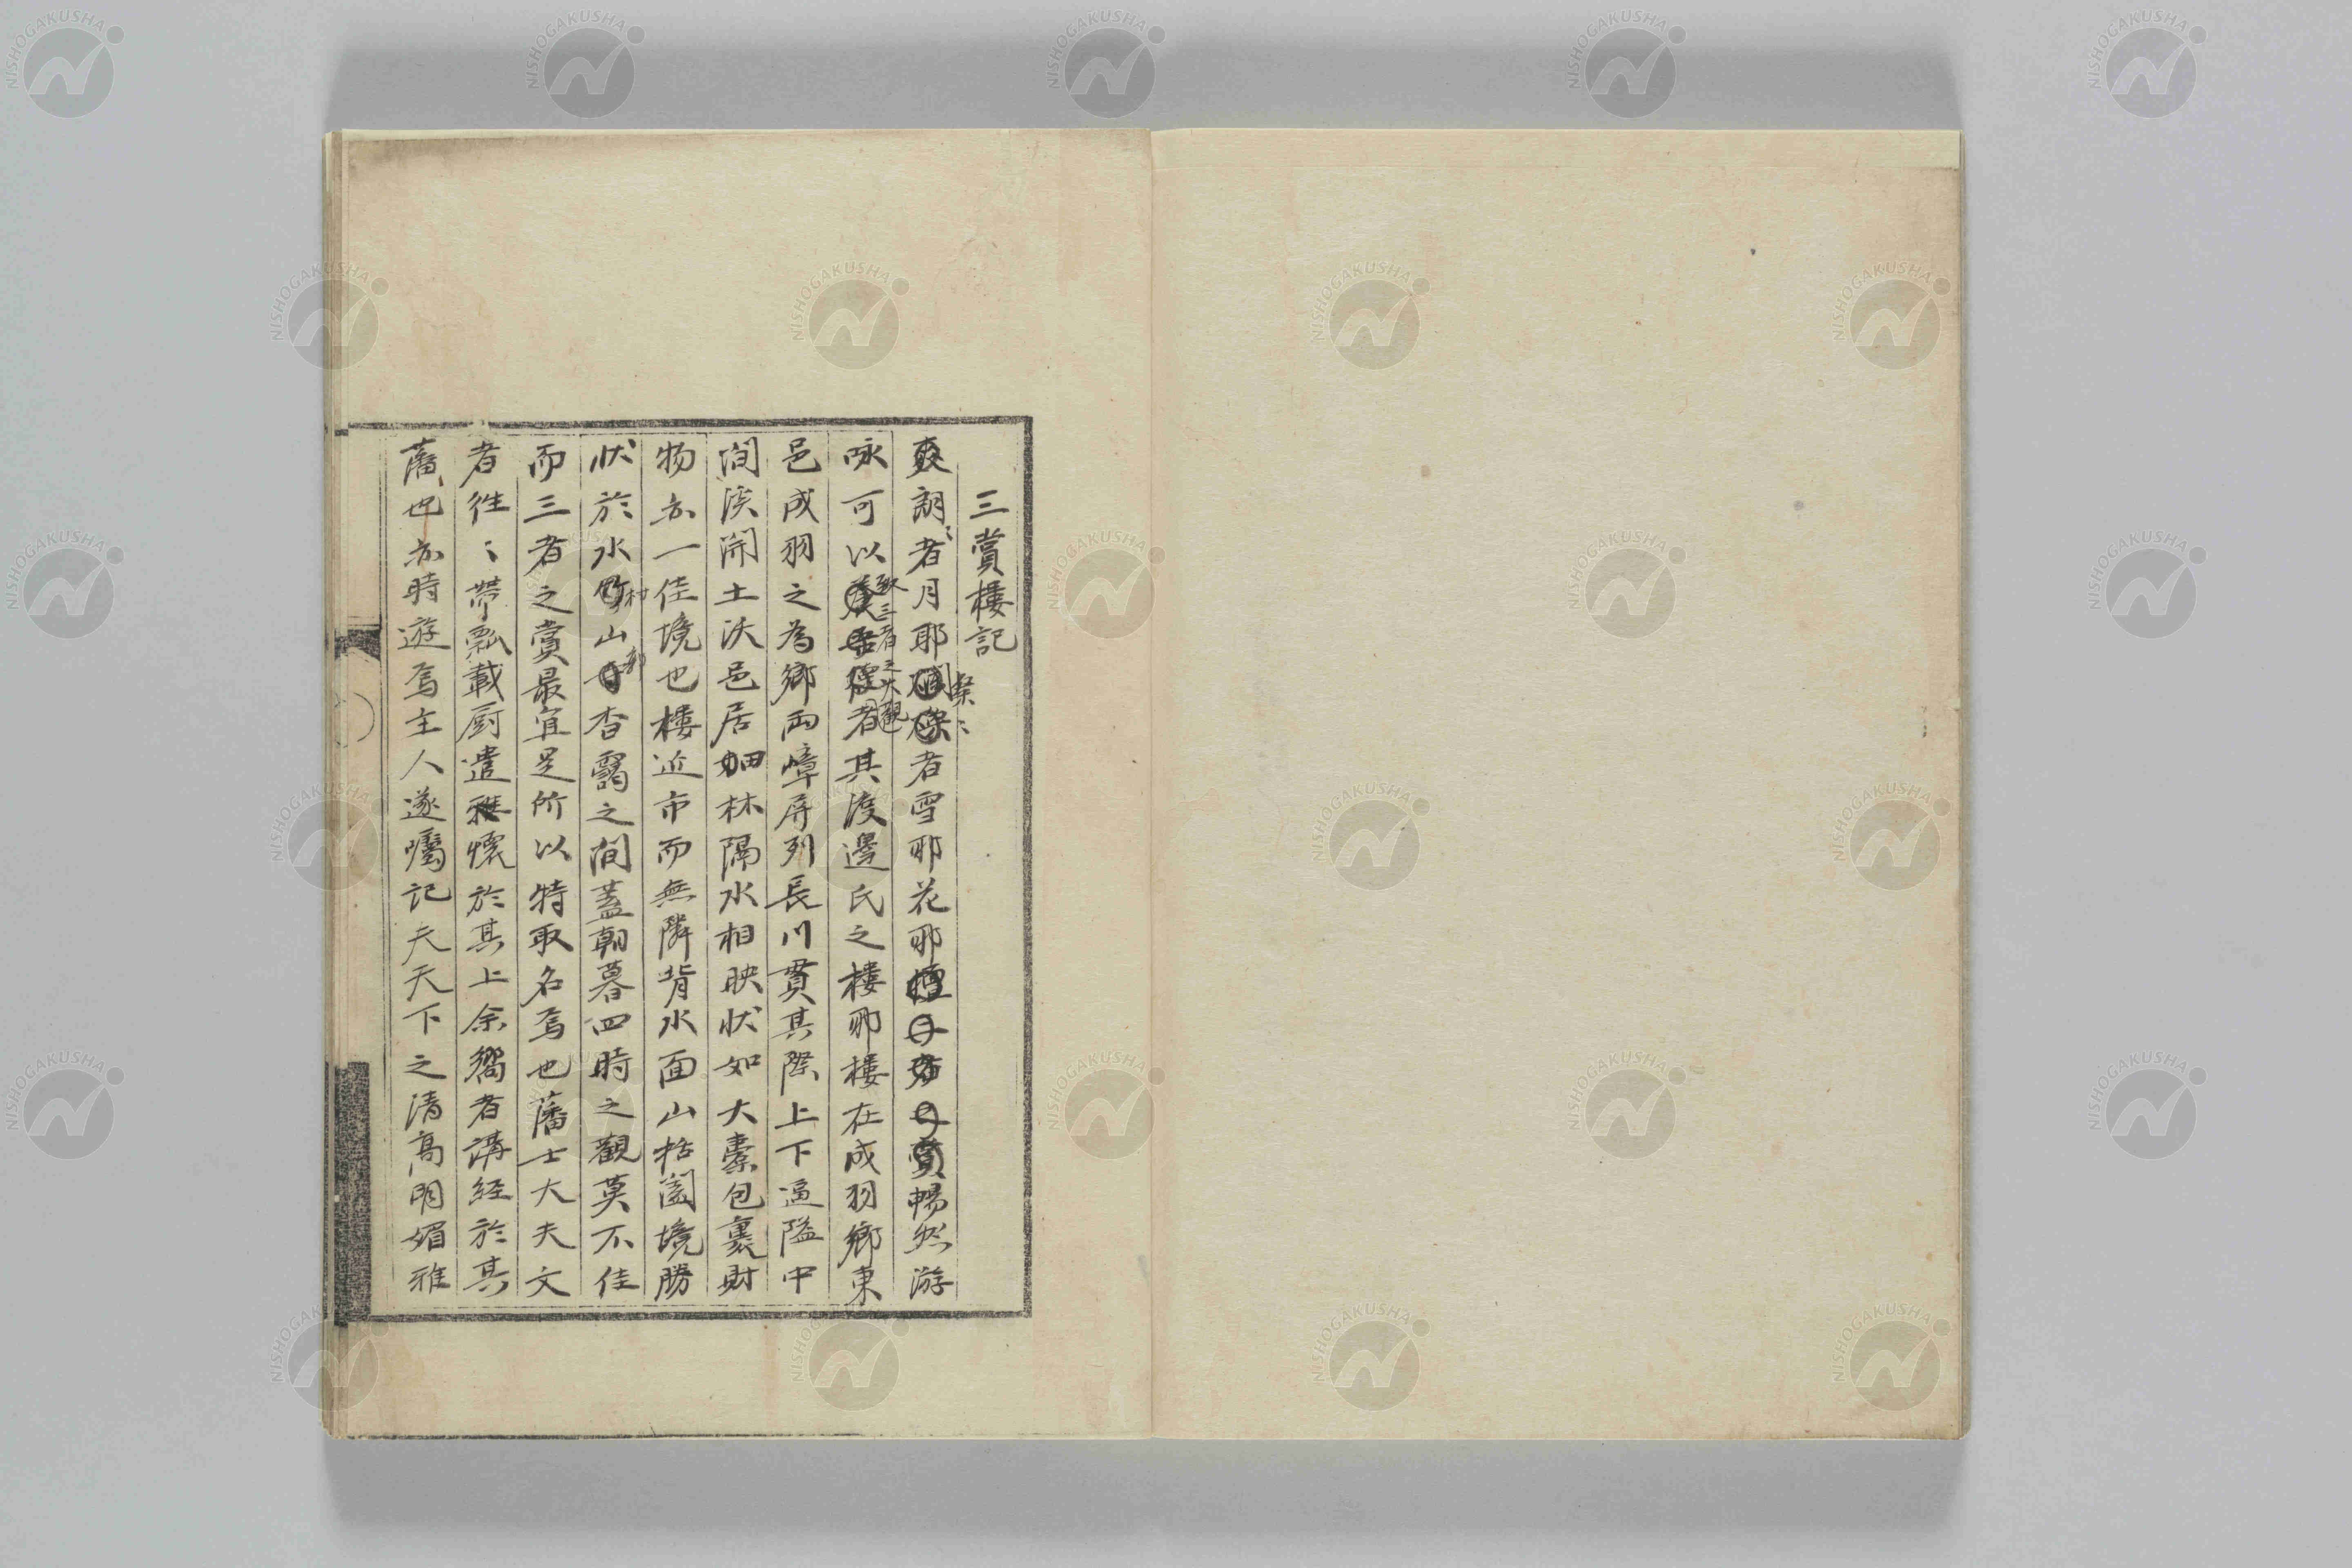 三賞樓記
爽朗〻者月耶粲〻者雪耶花耶暢然游
咏可以
致三者之大觀
者其渡邊氏之樓耶樓在成羽鄉東
邑成羽之為鄉兩嶂屏列長川貫其際上下逼隘中
間渓開土沃邑居畑林隔水相映状如大橐包裹財
物亦一佳境也樓近市而無隣背水面山括闔境勝
状於水村山郭杳靄之間蓋朝暮四時之觀莫不佳
而三者之賞最宜是所以特取名焉也藩士大夫文
者往〻帶瓢載厨遣雅懷於其上余嚮者講経於其
藩也亦時遊焉主人遂囑記夫天下之清高明媚雅
NISHOGAKUSHA